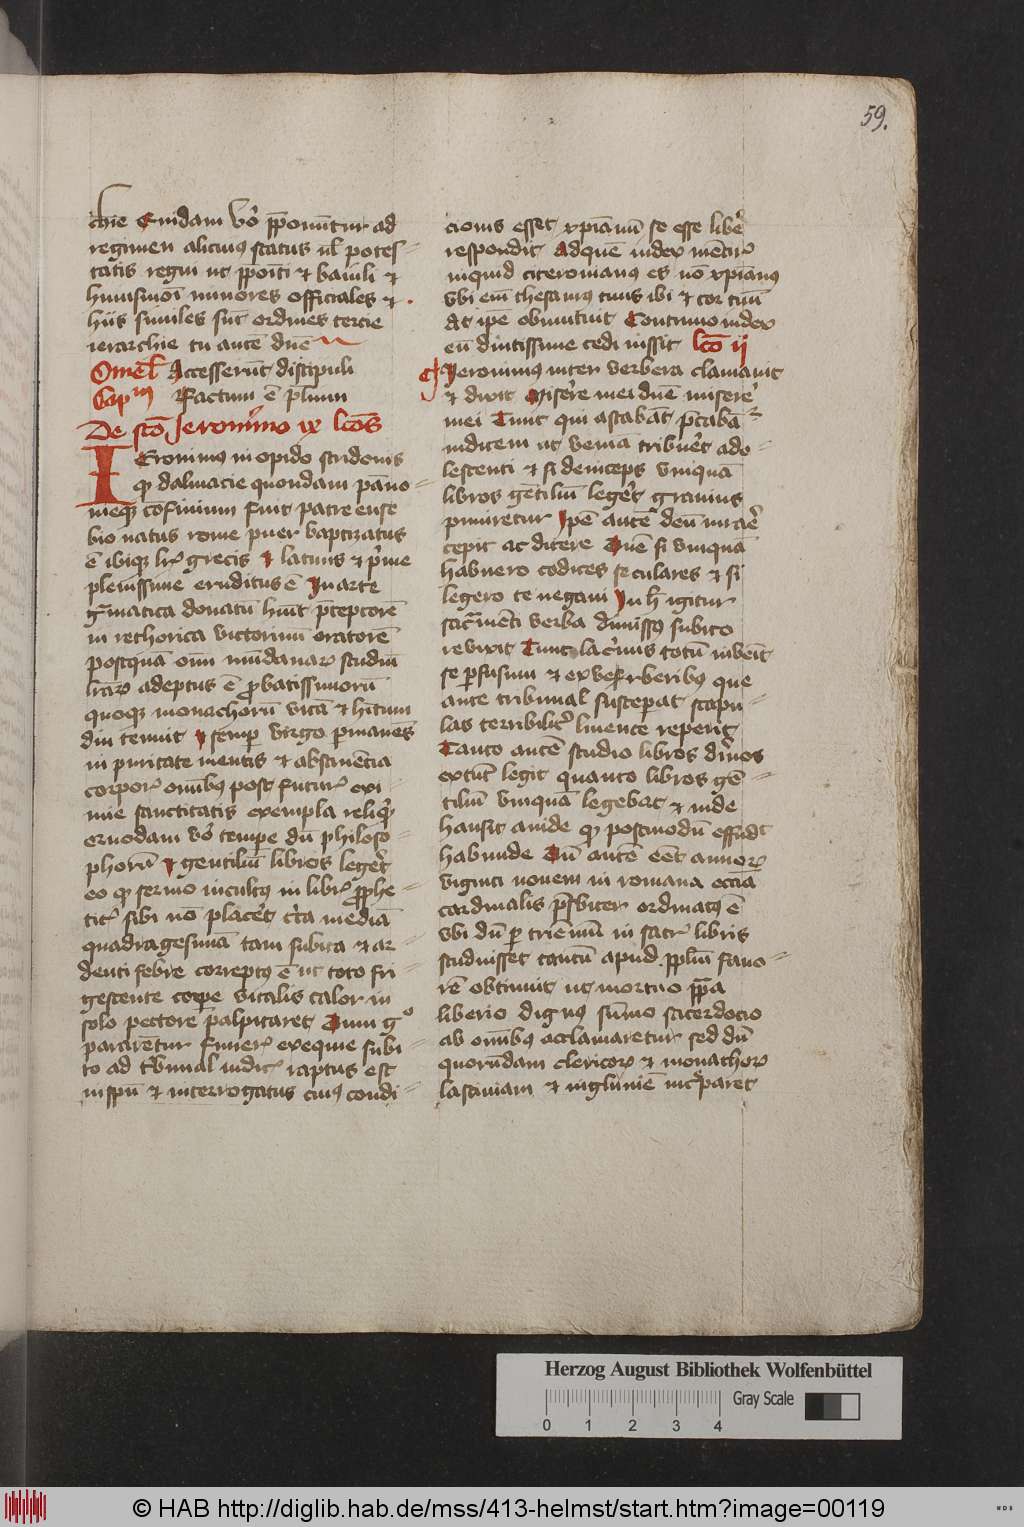 59.
chie Quidam vo͛ p̄ponūtur ad
regimen alicuiꝰ status ul̓ potes-
tatis regni ut p̄poīti et baiuli et
huiusmōi minores officiales et
hiis similes sūt ordines tercie
ierarchie tu autē dūe
Omel̓ Accesserūt discipuli
Cap̄m Factum ē p̄lium
De sc̄o Jeronīmo ix lc̄ōs
IEronimꝰ in opido stridonis
qđ dalmacie quondam pano-
nieqꝫ cōfinium fuit patre euse
bio natus rome puer baptizatus
ē ibiqꝫ lr̄is grecis et latinis et p̄me
plenissime eruditus ē In arte
gͣmatica donatū hūit p̄ceptorē
in rethorica victorinū oratorē
postquā om̄i mūdanaꝝ studiū
lr̄aꝝ adeptus ē ꝓbatissimorū
quoqꝫ monachorū vitā et hītum
diu tenuit et semꝑ virgo ꝑmanēs
in puritate mentis et abstinētia
corporꝭ om̄ibꝰ post futurꝭ exi-
mie sanctitatis exempla reliqͥt
eruodam vo͛ tempe dū philoso-
phorū et gentiliū libros leger̓t
eo qđ sermo incultꝰ in librꝭ ꝓphe-
ticꝭ sibi nō placer̓t circa mediā
quadragesimā tam subita et ar-
denti febre correptꝰ ē ut toto fri-
gescente corpe vitalis calor in
solo pectore palpitaret Dum gͦ
pararētur funerꝭ exequie subi-
to ad tͥbunal iudicꝭ raptus est
in spū et interrogatus cuiꝰ condi-
cionis esset xp̄ianū se esse liber̓
respondit Adquē iudex mētirꝭ
inquid ciceronianꝰ es nō xp̄ianꝰ
vbi em̄ thesaurꝰ tuus ibi et cor tuū
At ip̄e obmutuit Continuo iudex
eū durissime cedi iussit lc̄o ij
Jeronimus inter verbera clamauit
et dixit Miserͤre mei dūe miserer̓
mei Tunc qui astabāt p̄cabāt
iudicem ut venia tribuer̓t ado-
lescenti et si deinceps vnquā
libros gētiliū leger̓t grauius
puniretur Ip̄e autē deū iurar̓
cepit ac dicere Dn̄e si vnquā
habuero codices seculares et si
legero te negaui In h̄ igitur
sacͣmēti verba dimissꝰ subito
reuixit Tunc lacͥmis totū inuēit
se ꝑfusum et ex verberibꝰ que
ante tribunal susceperat scapu-
las terribilit̓ liuente reperit
Tanto autē studio libros diͥnos
extūc legit quanto libros gē-
tiliū vnquā legebat et inde
hausit auide qđ postmodū effudit
habunde Dū autē eēt annorꝝ
viginti nouem in romana ecc̄ia
cardinalis p̄sbiter ordinatꝰ ē
vbi dū ꝑ triēniū in sacrꝭ libris
studuisset tantū apud pp̄lm̄ fauo-
rē obtinuit ut mortuo pp̄a
liberio dignꝰ sūmo sacerdocio
ab om̄ibꝰ acclamaretur sed dū
quorūdam clericorꝝ et monachorꝝ
lasciuiam et ingluuiē incͤparet
Herzog August Bibliothek Wolfenbüttel
0 1 2 3 4
Gray Scale
© HAB http://diglib.hab.de/mss/413-helmst/start.htm?image=00119